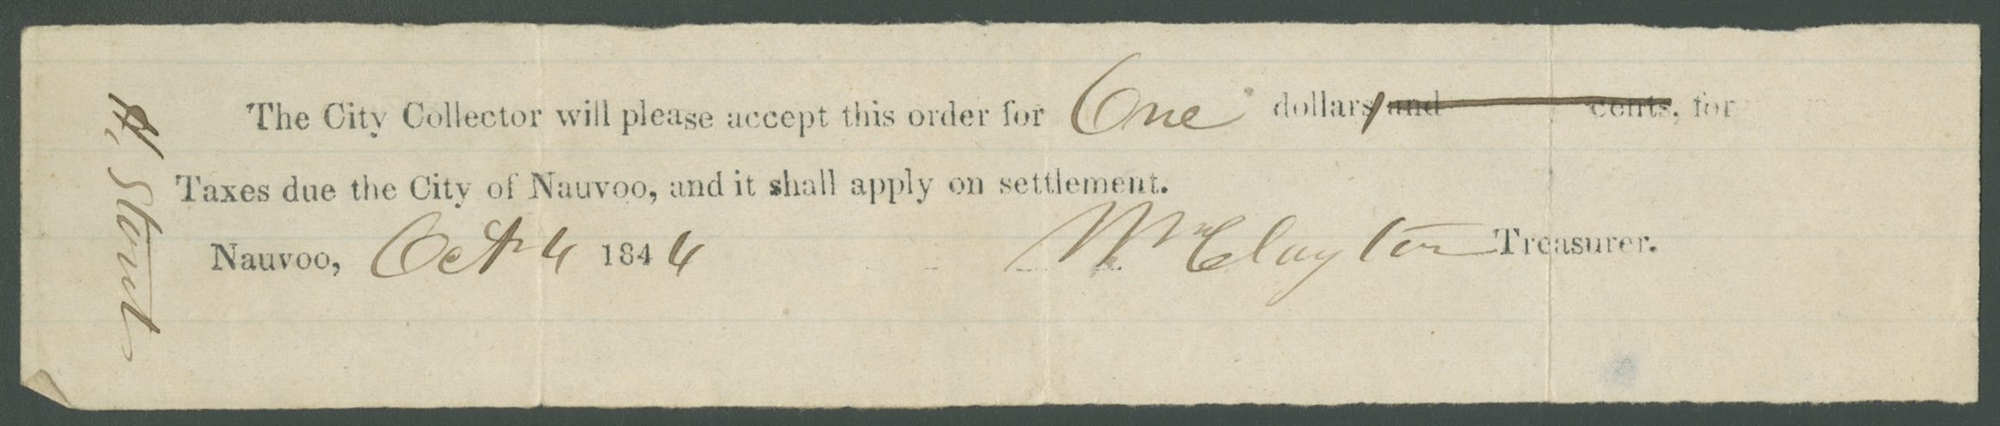 The City Collector will please accept this order for One dollars, and cents, for
Taxes due the City of Nauvoo, and it shall apply on settlement.
Nauvoo, Oct 4 1844 Wm Clayton Treasurer.
H. Stout